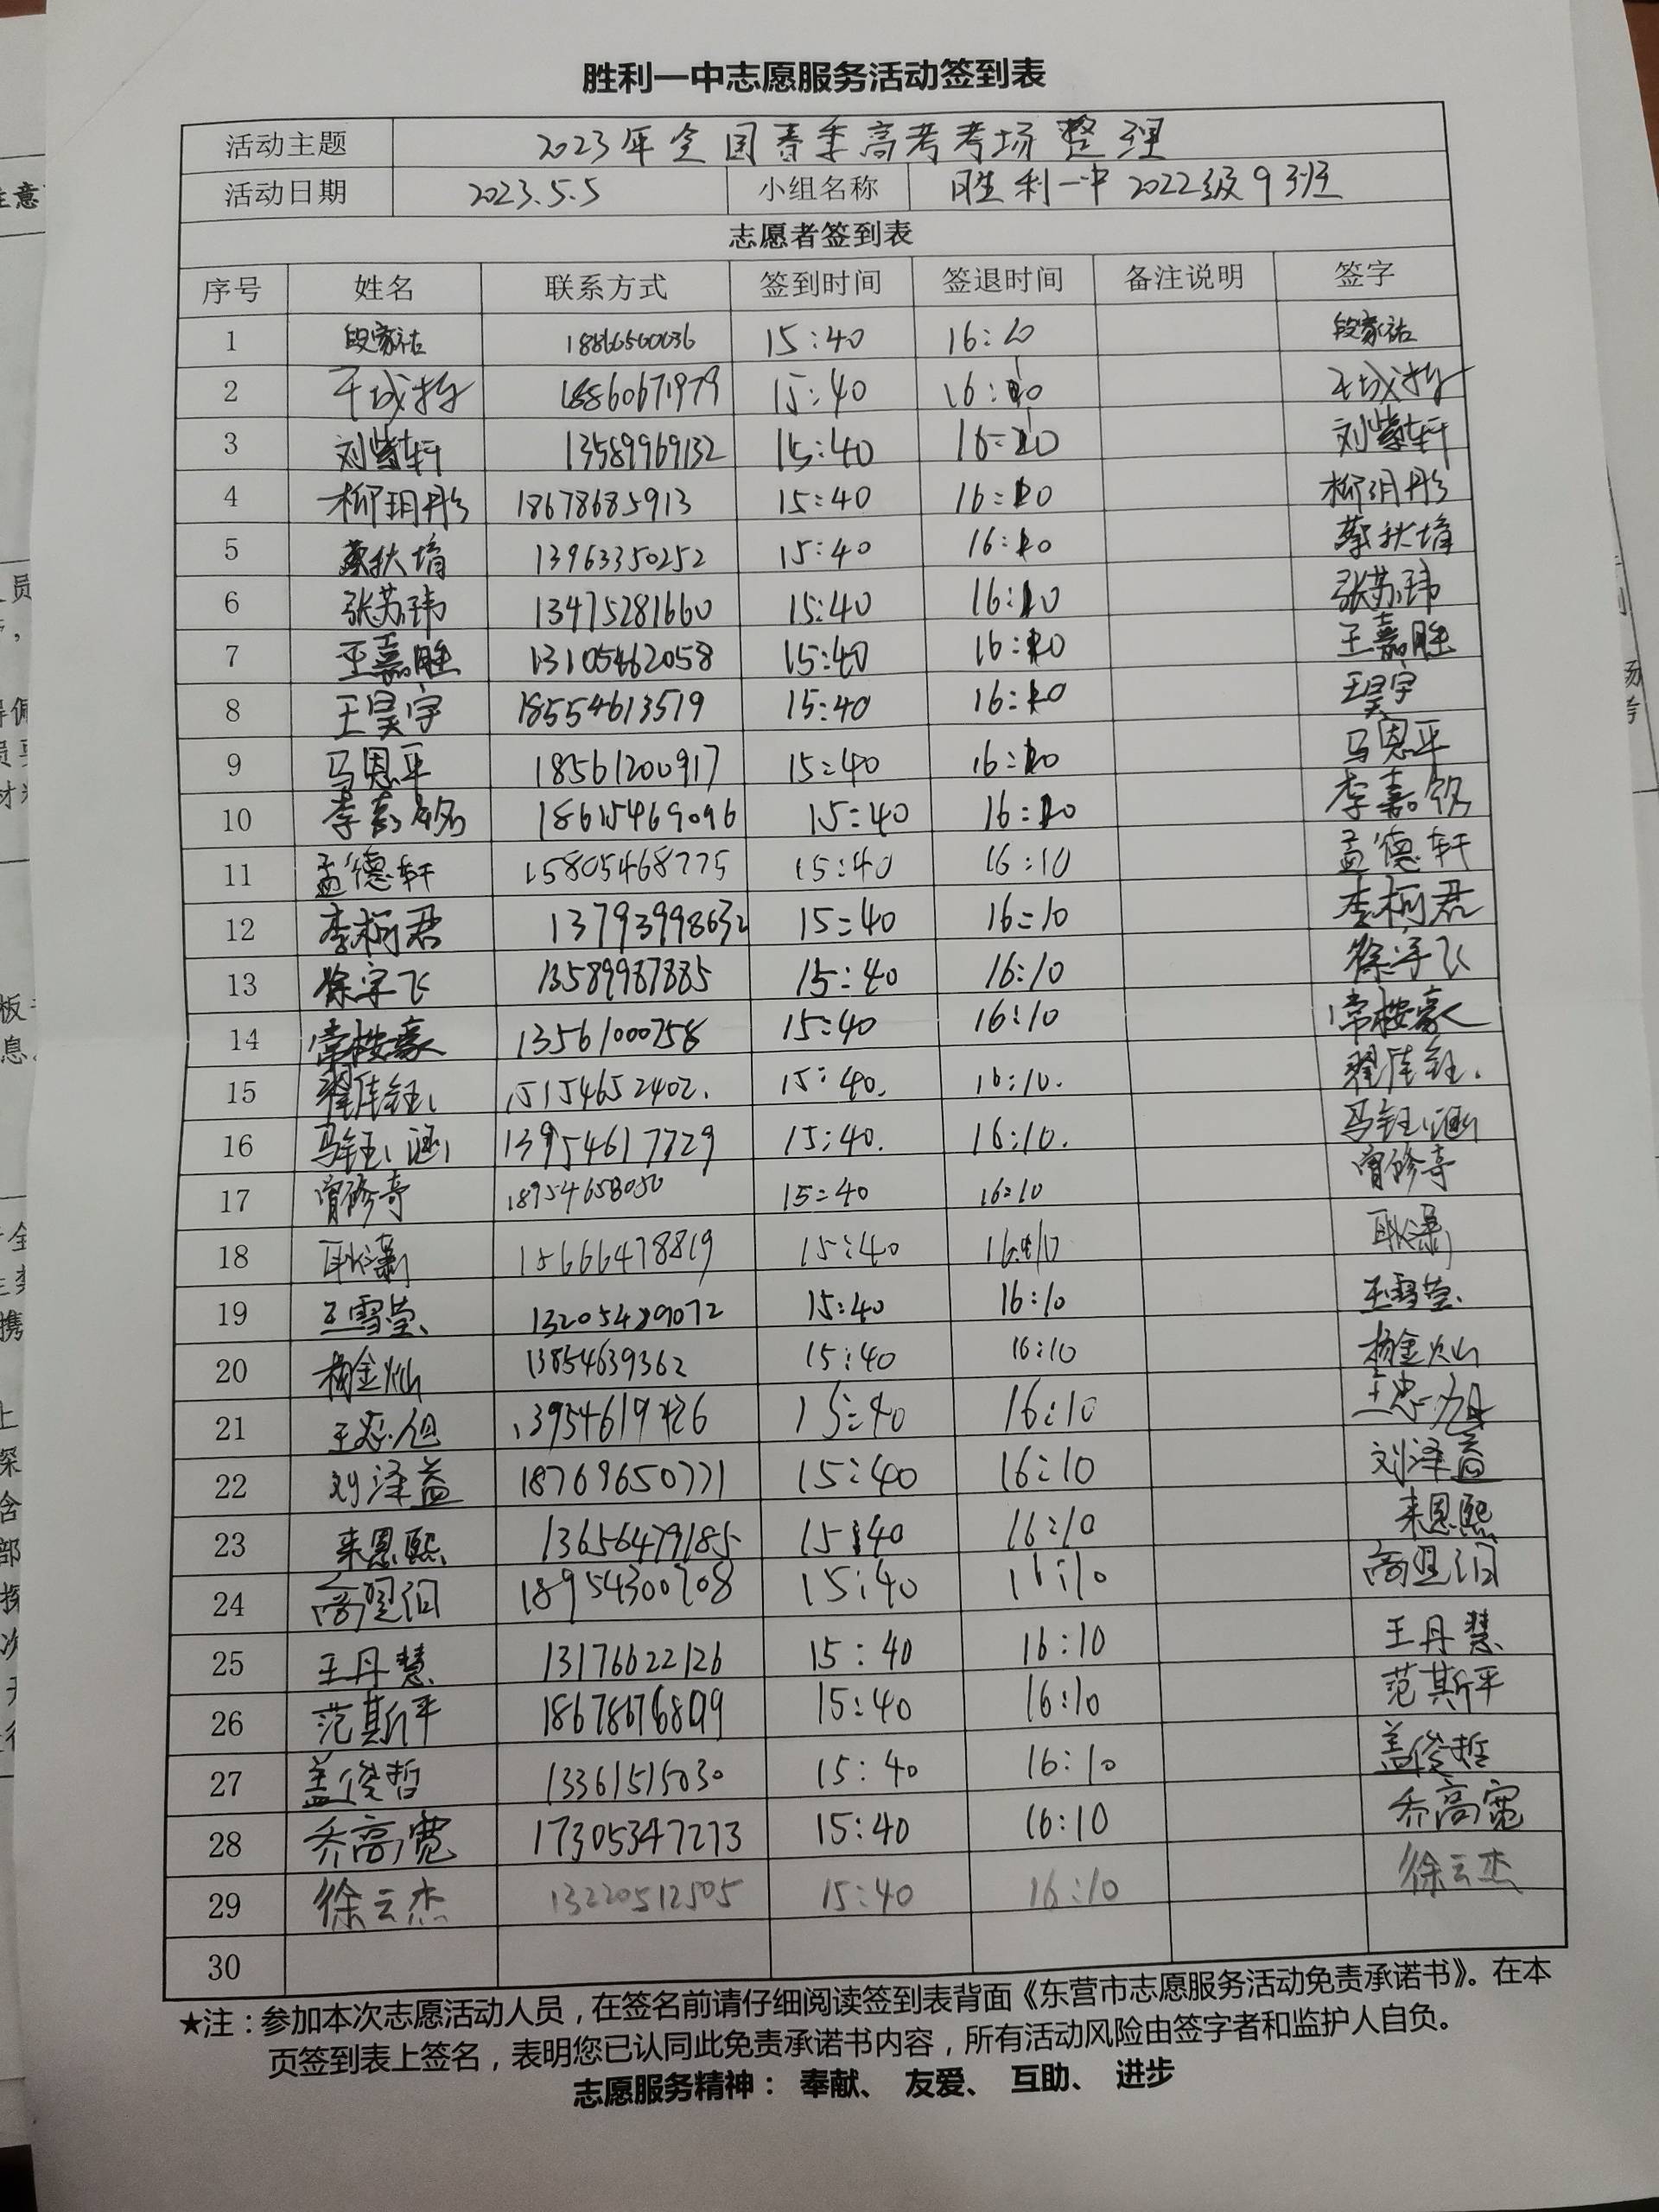 胜利一中志愿服务活动签到表
活动主题 2023年全国春季高考考场整理
活动日期 2023.5.5 小组名称 胜利一中2022级9班
志愿者签到表
序号 姓名 联系方式 签到时间 签退时间 备注说明 签字
1 段家祜 15:40 段家祜
2 18860671979 15:40
3 刘紫轩 13589969132 15:40 16:10 刘紫轩
4 柳玥彤 18678685913 15:40 16:10 柳玥彤
5 13963350252 15:40 16:10
6 张苏玮 13475281660 15:40 16:10 张苏玮
7 王嘉胜 13105462058 15:40 16:10 王嘉胜
8 王昊宇 18554613519 15:40 16:10 王昊宇
9 马恩平 18561200917 15:40 16:10 马恩平
10 李嘉铭 18615469096 15:40 16:10 李嘉铭
11 孟德轩 15805468775 15:40 16:10 孟德轩
12 李柯君 13793998632 15:40 16:10 李柯君
13 徐宇飞 13589987885 15:40 16:10 徐宇飞
14 13561000758 15:40 16:10
15 翟佳钰 15154652402. 15:40. 16:10. 翟佳钰
16 马钰涵 13954617729 15:40. 16:10. 马钰涵
17 曾修奇 18954658050 15:40 16:10 曾修奇
18 耿潇 15666478819 15:40 耿潇
19 王雪莹 13205489072 15:40 16:10 王雪莹
20 杨金灿 13854639362 15:40 16:10 杨金灿
21 15:40 16:10
22 刘泽益 18769650771 15:40 16:10 刘泽益
23 来恩熙 13656479185 15:40 16:10 来恩熙
24 18954300708 15:40 16:10
25 王丹慧 13176622126 15:40 16:10 王丹慧
26 范斯平 15:40 16:10 范斯平
27 盖俊哲 13361515030 15:40 16:10 盖俊哲
28 乔高宽 17305347273 15:40 16:10 乔高宽
29 徐云杰 13220512505 15:40 16:10 徐云杰
30
★注：参加本次志愿活动人员，在签名前请仔细阅读签到表背面《东营市志愿服务活动免责承诺书》。在本
页签到表上签名，表明您已认同此免责承诺书内容，所有活动风险由签字者和监护人自负。
志愿服务精神： 奉献、 友爱、 互助、 进步